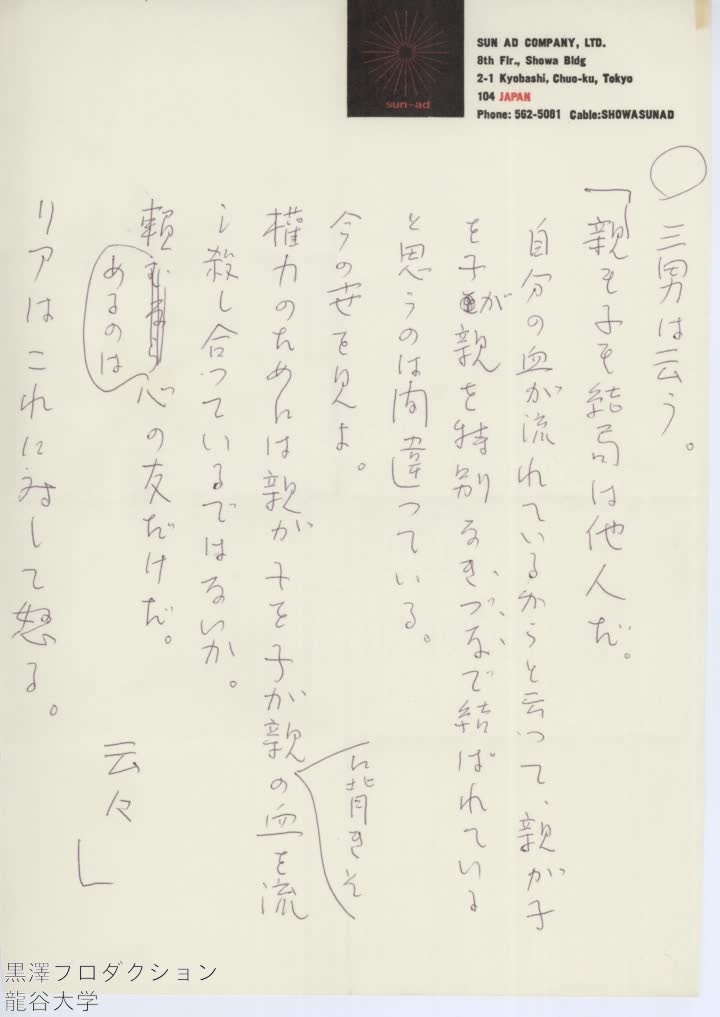 sun-ad
SUN AD COMPANY, LTD.
8th Flr., Showa Bldg
2-1 Kyobashi, Chuo-ku, Tokyo
104 JAPAN
Phone: 562-5081 Cable:SHOWASUNAD
三男は云う。
「親も子も結局は他人だ。
自分の血が流れているからと云つて、親が子
を子が親を特別なきづなで結ばれている
と思うのは間違つている。
今の世を見よ。
権力のためには親が子を子が親に背きその血を流
し殺し合つているではないか。
頼
あるのは
心の友だけだ。
云々」
リアはこれに対して怒る。
黒澤プロダクション
龍谷大学